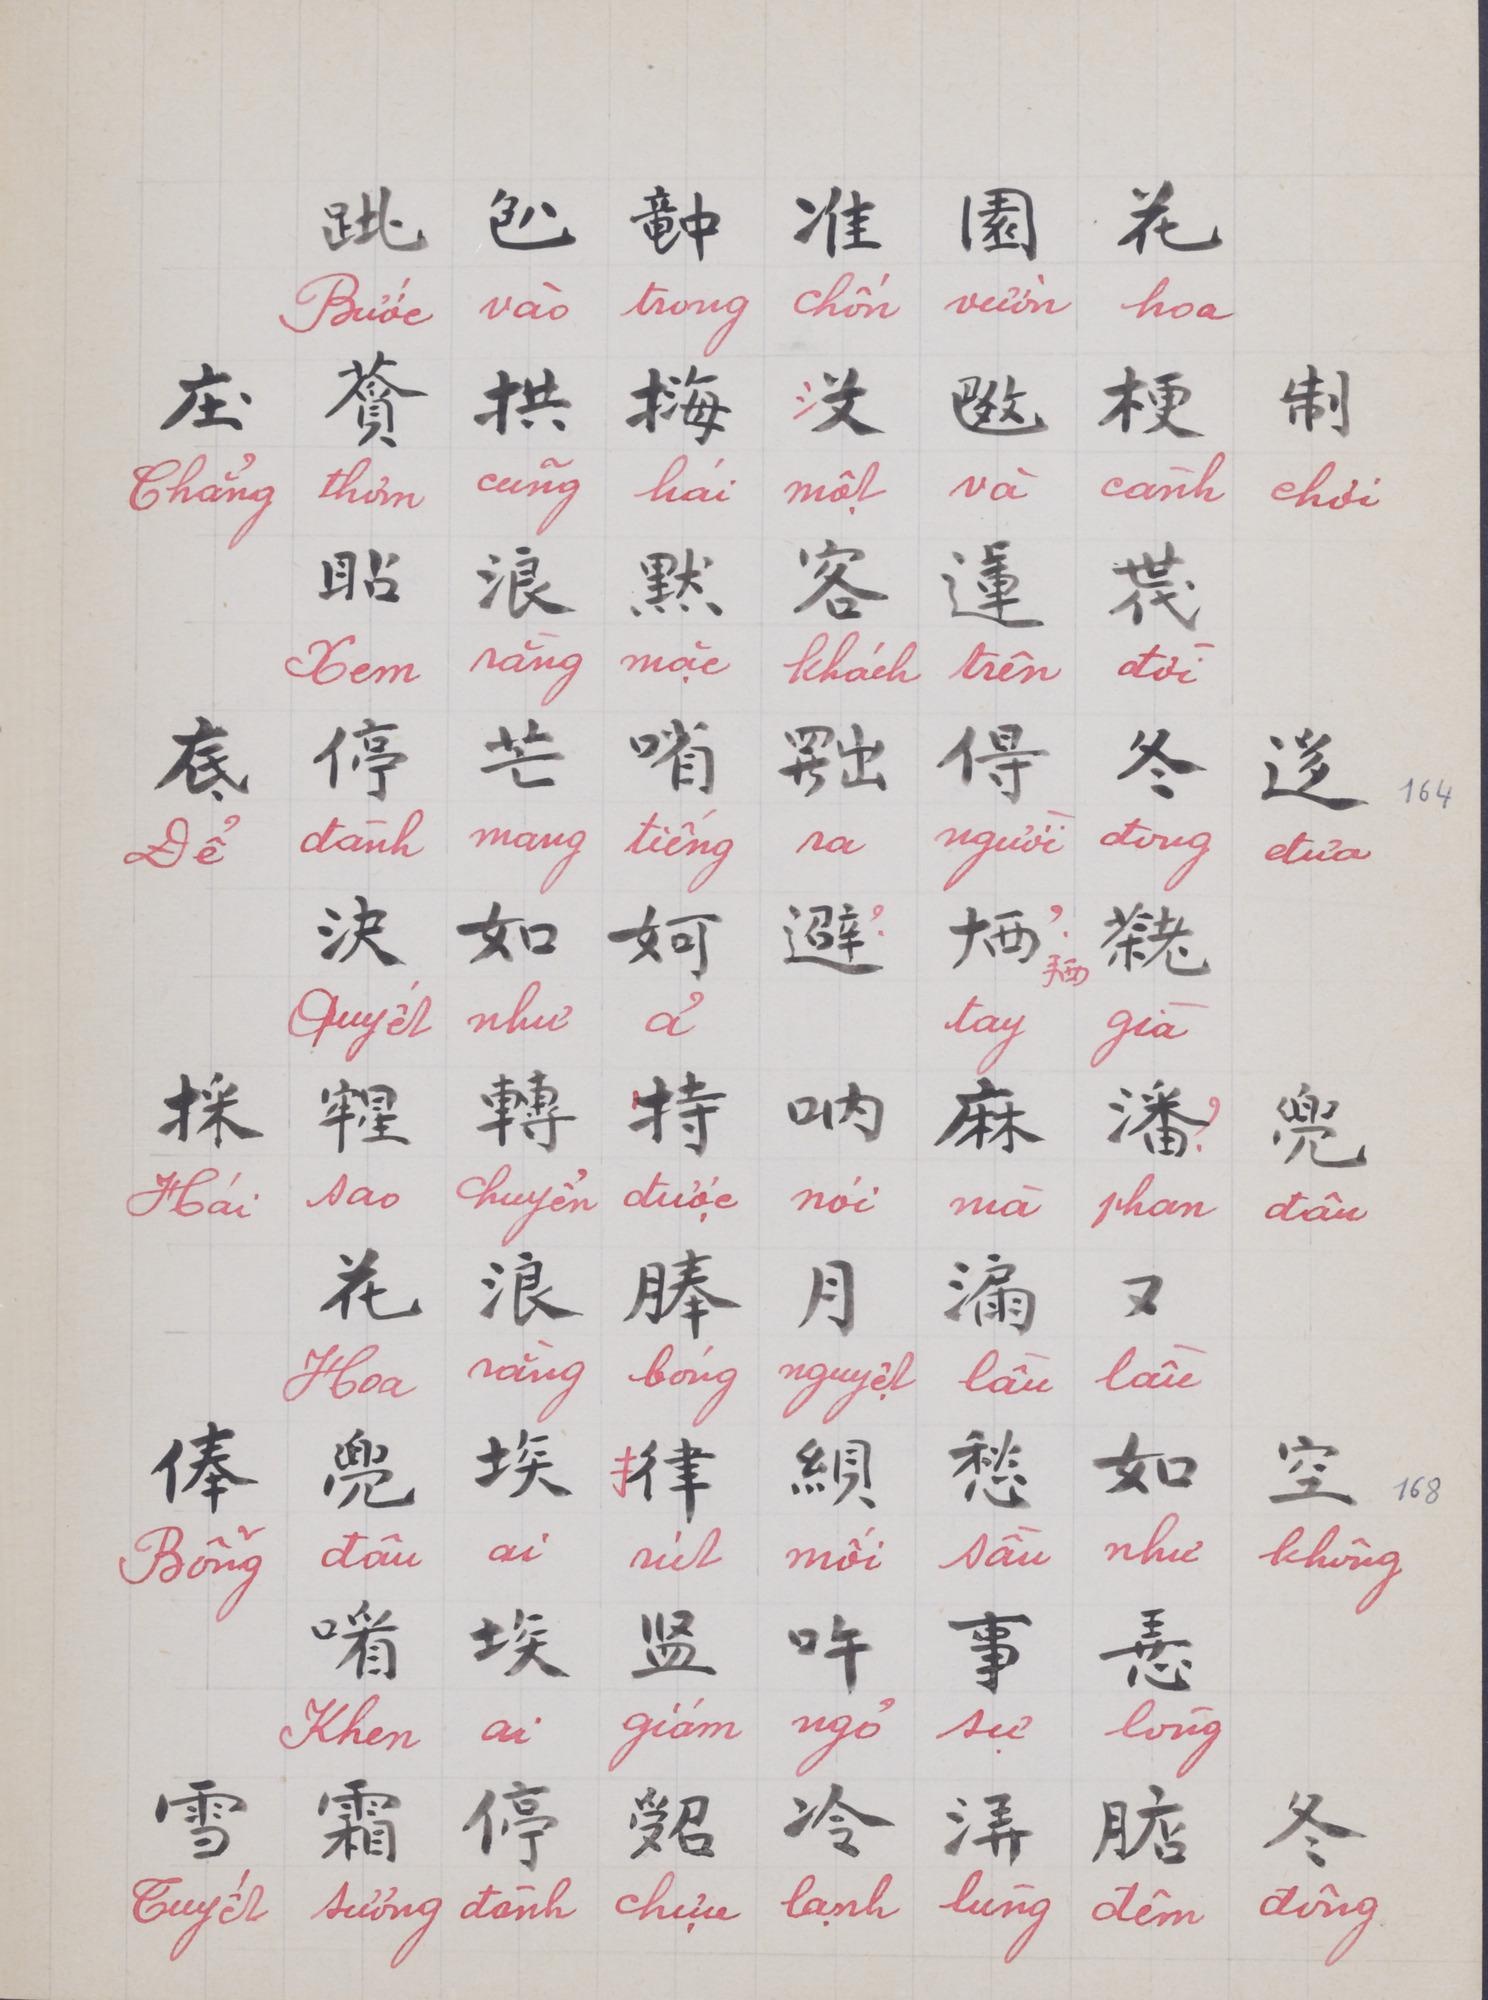 𨀈 𠓨 𥪝 准 園 花
Bước vào trong chốn vườn hoa
庄 薠 拱 挴 沒 𢽼 梗 制
Chẳng thơm cũng hái một và cành chơi
䀡 浪 默 客 𨕭 𠁀
Xem rằng mặc khách trên đời
底 停 芒 㗂 𠚢 㝵 冬 迻 164
Để đành mang tiếng ra người đong đưa
決 如 妸 避 ? 𢬣 ? 𦓅
Quyết như ả tay già
採 𫳵 轉 特 吶 麻 潘 ? 兜
Hái sao chuyển được nói mà phan đâu
花 浪 䏾 月 漏 又
Hoa rằng bóng nguyệt lầu lầu
俸 兜 埃 律 䋦 愁 如 空 168
Bỗng đâu ai rút mối sầu như không
𠸦 埃 监 吘 事 𢚸
Khen ai giám ngỏ sự lòng
雪 霜 停 𠹾 冷 㳥 𣎀 冬
Tuyết sương đành chịu lạnh lùng đêm đông